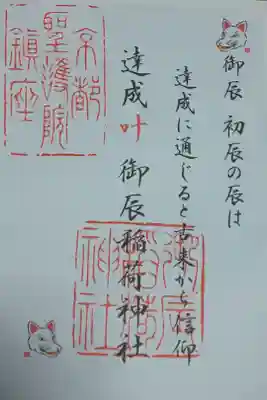 御辰 初辰の辰は
達成に通じると古来から信仰
達成 叶 御辰稲荷神社
京都
聖護院
鎮座
御辰
稲荷
神社